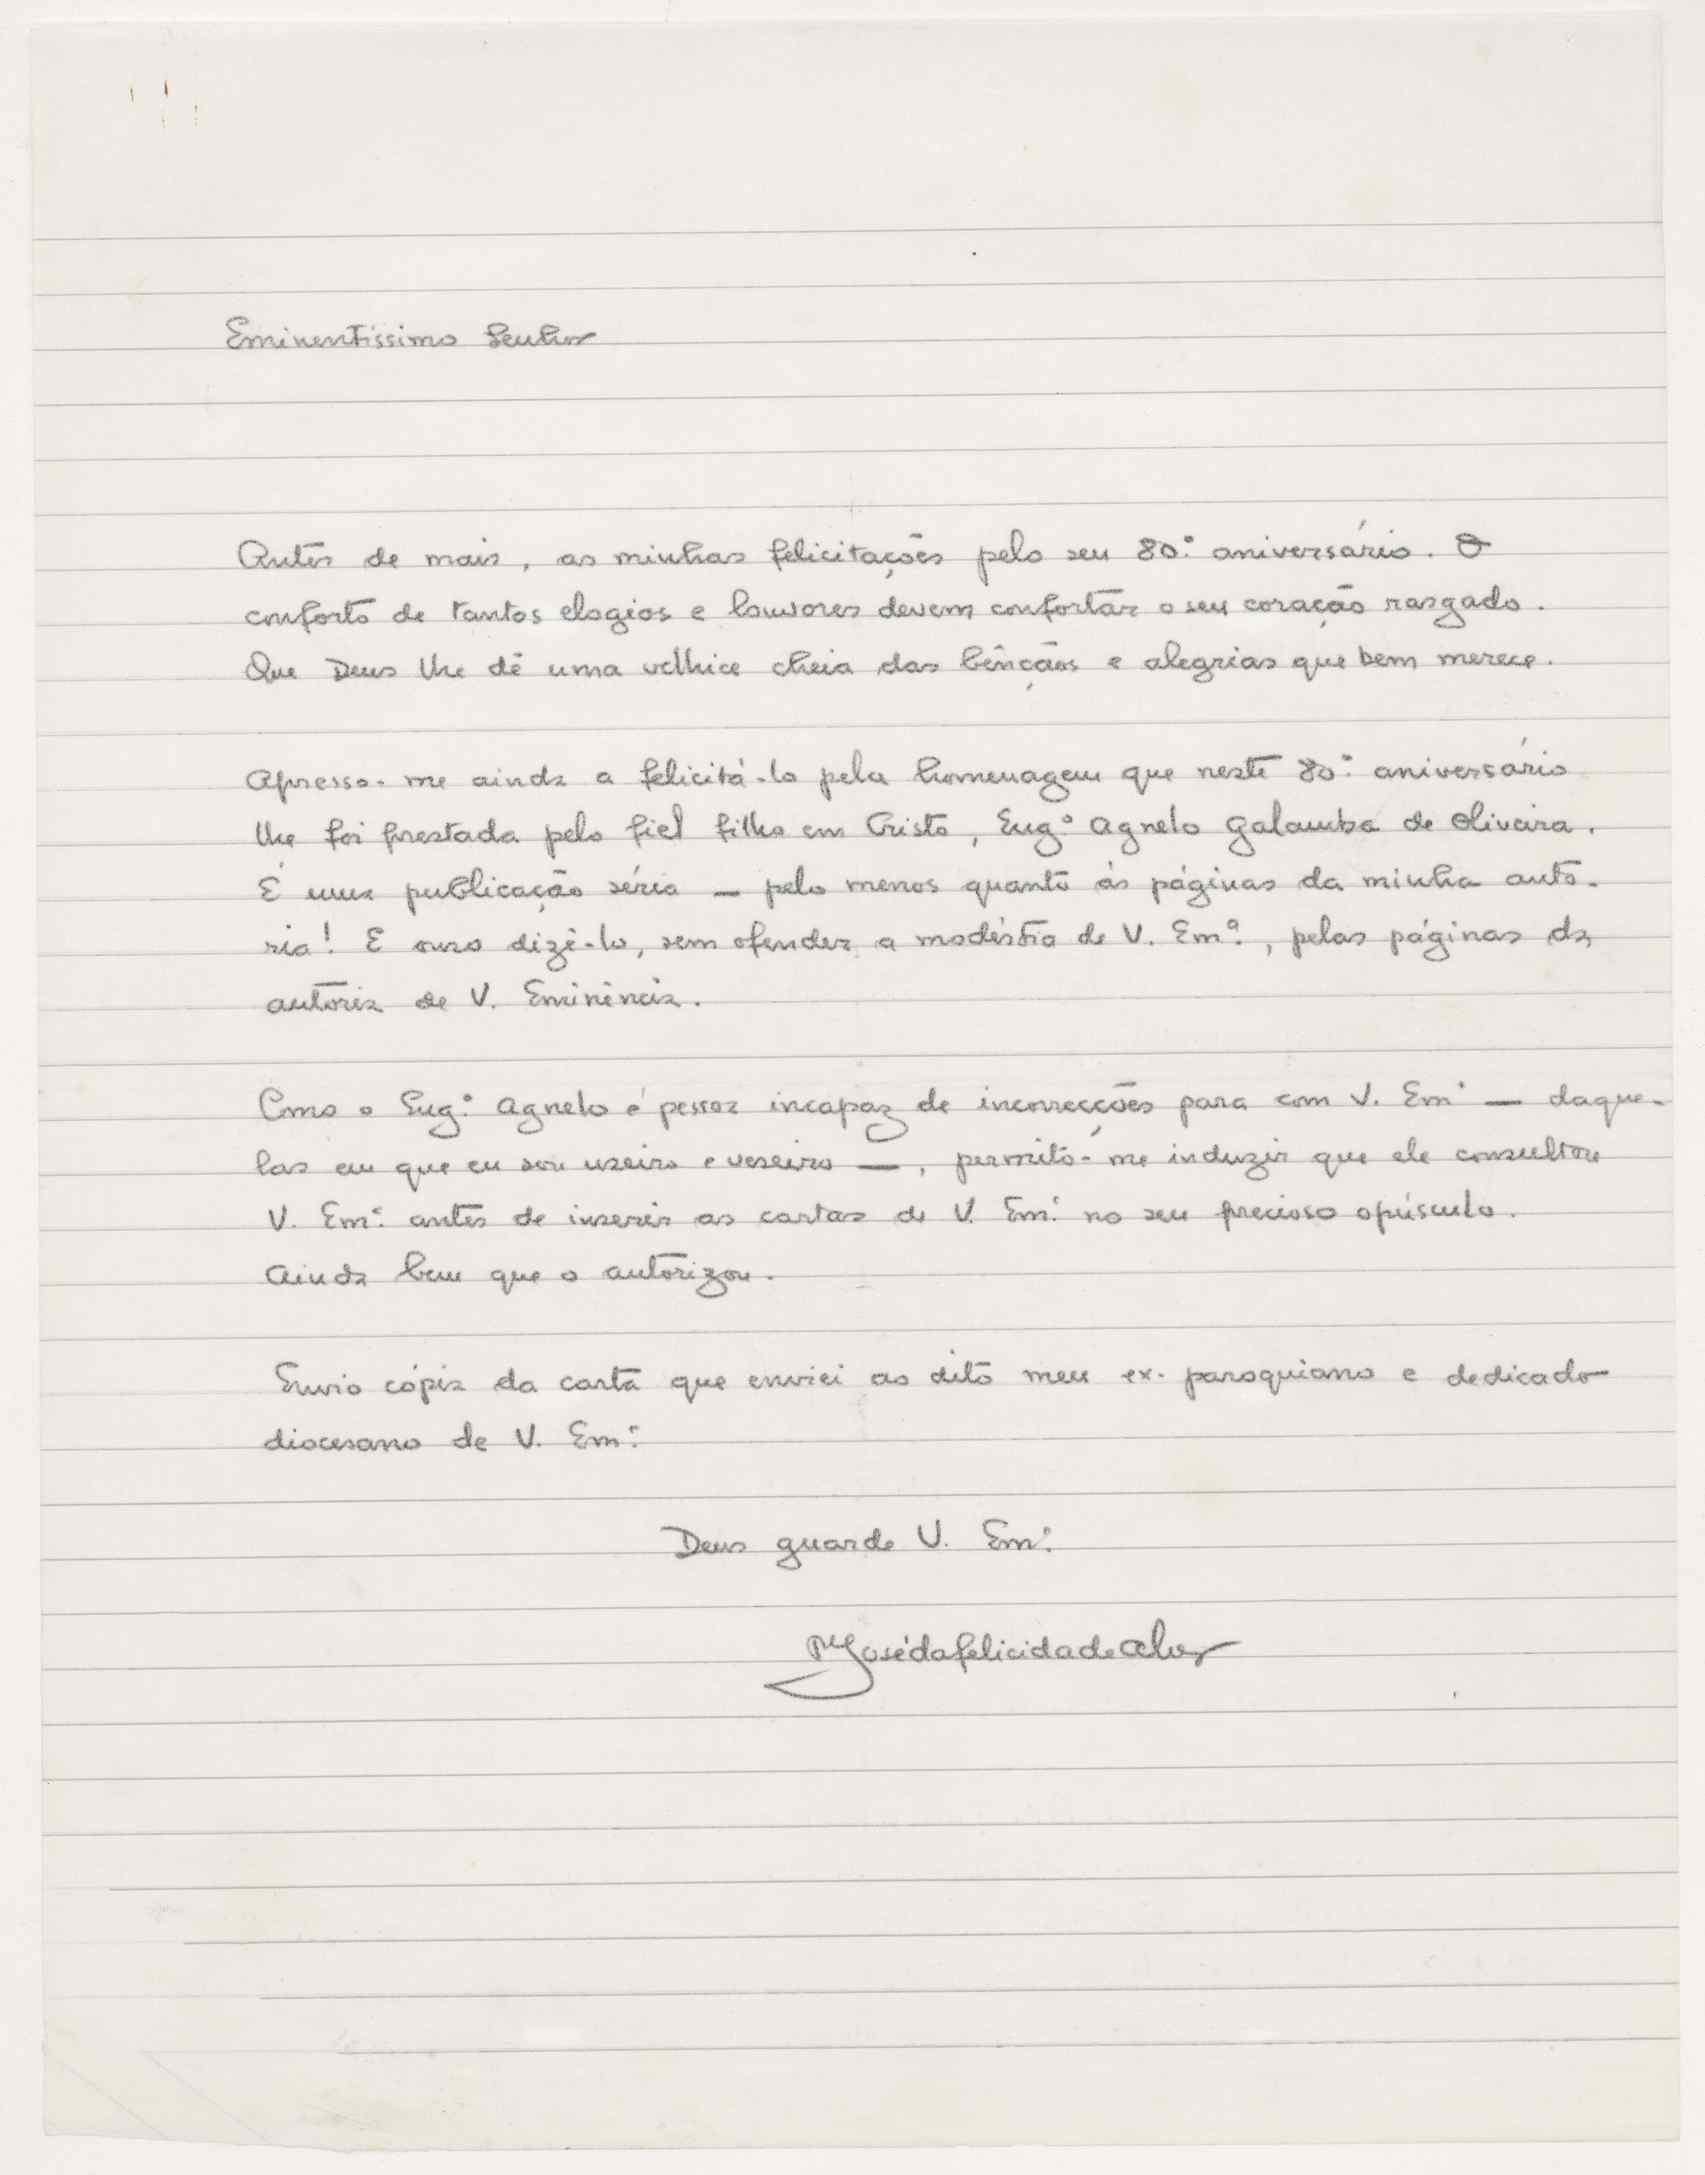 Eminentíssimo Senhor
Antes de mais, as minhas felicitações pelo seu 80.º aniversário. O
conforto de tantos elogios e louvores devem confortar o seu coração rasgado.
Que Deus lhe dê uma velhice cheia das bênçãos e alegrias que bem merece.
Apresso-me ainda a felicitá-lo pela homenagem que neste 80.º aniversário
lhe foi prestada pelo fiel filho em Cristo, Eng.º Agnelo Galamba de Oliveira.
É uma publicação séria — pelo menos quanto às páginas da minha auto-
ria! E ouso dizê-lo, sem ofender a modéstia de V. Em.ª, pelas páginas da
autoria de V. Eminência.
Como o Eng.º Agnelo é pessoa incapaz de incorrecções para com V. Em.ª — daque-
las em que eu sou useiro e veseiro —, permito-me induzir que ele consultou
V. Em.ª antes de inserir as cartas de V. Em.ª no seu precioso opúsculo.
Ainda bem que o autorizou.
Envio cópia da carta que enviei ao dito meu ex-paroquiano e dedicado
diocesano de V. Em.ª
Deus guarde V. Em.ª
P.e José da Felicidade Alves